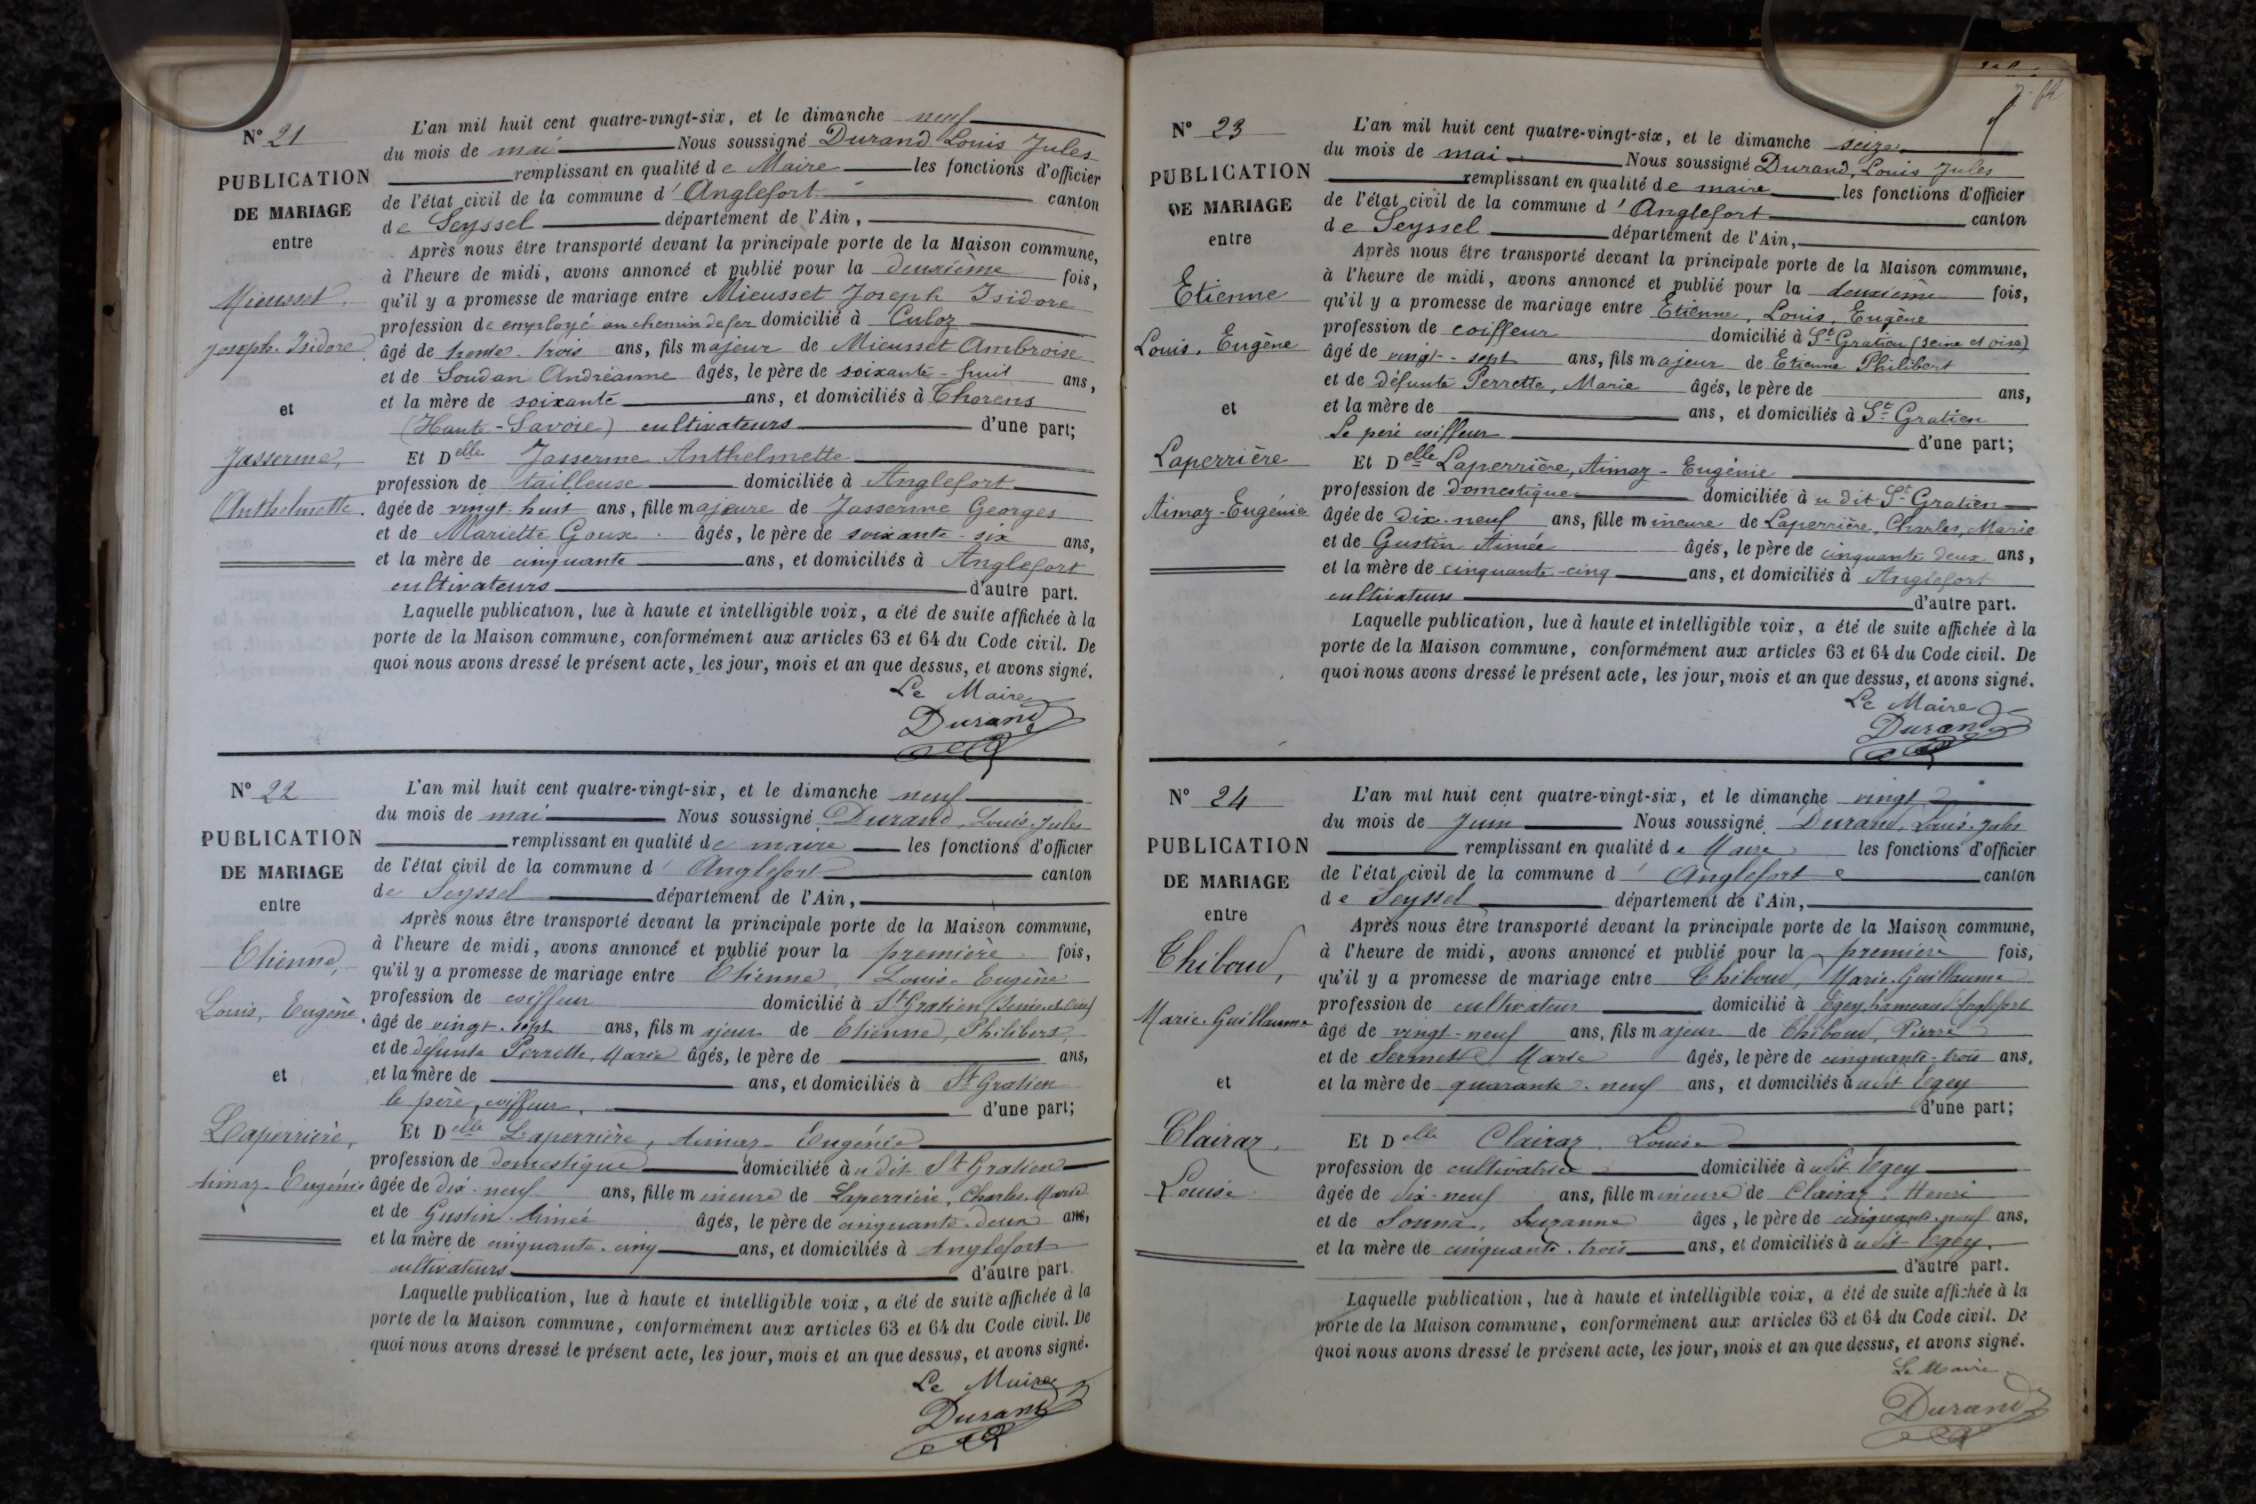 N° 21
PUBLICATION
DE MARIAGE
entre
Mieusset
Joseph. Isidore
et
Jasserme,
Anthelmette.
L'an mil huit cent quatre-vingt-six, et le dimanche neuf
du mois de mai Nous soussigné Durand Louis Jules
remplissant en qualité de Maire les fonctions d'officier
de l'état civil de la commune d'Anglefort canton
de Seyssel département de l'Ain,
Après nous être transporté devant la principale porte de la Maison commune,
à l'heure de midi, avons annoncé et publié pour la deuxième fois,
qu'il y a promesse de mariage entre Mieusset Joseph Isidore
profession de employé au chemin de fer domicilié à Culoz
âgé de trente-trois ans, fils majeur de Mieusset Ambroise
et de Soudan Andréanne âgés, le père de soixante-huit ans,
et la mère de soixante ans, et domiciliés à Thorens
(Haute-Savoie) cultivateurs d'une part;
Et Delle Jasserme Anthelmette
profession de tailleuse domiciliée à Anglefort
âgée de vingt-huit ans, fille majeure de Jasserme Georges
et de Mariette Goux âgés, le père de soixante-six ans,
et la mère de cinquante ans, et domiciliés à Anglefort
cultivateurs d'autre part.
Laquelle publication, lue à haute et intelligible voix, a été de suite affichée à la
porte de la Maison commune, conformément aux articles 63 et 64 du Code civil. De
quoi nous avons dressé le présent acte, les jour, mois et an que dessus, et avons signé.
Le Maire
Durand
N° 22
PUBLICATION
DE MARIAGE
entre
Etienne,
Louis, Eugène.
et
Laperrière,
Aimaz-Eugénie
L'an mil huit cent quatre-vingt-six, et le dimanche neuf
du mois de mai Nous soussigné Durand, Louis. Jules
remplissant en qualité de maire les fonctions d'officier
de l'état civil de la commune d'Anglefort canton
de Seyssel département de l'Ain,
Après nous être transporté devant la principale porte de la Maison commune,
à l'heure de midi, avons annoncé et publié pour la première fois,
qu'il y a promesse de mariage entre Etienne, Louis-Eugène
profession de coiffeur domicilié à St Gratien (Seine-et-Oise)
âgé de vingt-sept ans, fils majeur de Etienne, Philibert,
et de défunte Perrette, Marie âgés, le père de ans,
et la mère de ans, et domiciliés à St Gratien
le père, coiffeur, d'une part;
Et Delle Laperrière, Aimaz-Eugénie
profession de domestique domiciliée à udit St Gratien
âgée de dix-neuf ans, fille mineure de Laperrière, Charles-Marie
et de Gustin. Aimée âgés, le père de cinquante-deux ans,
et la mère de cinquante-cinq ans, et domiciliés à Anglefort
cultivateurs d'autre part.
Laquelle publication, lue à haute et intelligible voix, a été de suite affichée à la
porte de la Maison commune, conformément aux articles 63 et 64 du Code civil. De
quoi nous avons dressé le présent acte, les jour, mois et an que dessus, et avons signé.
Le Maire
Durand
N° 23
PUBLICATION
DE MARIAGE
entre
Etienne
Louis, Eugène
et
Laperrière
Aimaz-Eugénie
L'an mil huit cent quatre-vingt-six, et le dimanche seize
du mois de mai Nous soussigné Durand, Louis Jules
remplissant en qualité de maire les fonctions d'officier
de l'état civil de la commune d'Anglefort canton
de Seyssel département de l'Ain,
Après nous être transporté devant la principale porte de la Maison commune,
à l'heure de midi, avons annoncé et publié pour la deuxième fois,
qu'il y a promesse de mariage entre Etienne, Louis, Eugène
profession de coiffeur domicilié à St Gratien (Seine et Oise)
âgé de vingt-sept ans, fils majeur de Etienne Philibert
et de défunte Perrette, Marie âgés, le père de ans,
et la mère de ans, et domiciliés à St Gratien
Le père coiffeur d'une part;
Et Delle Laperrière, Aimaz-Eugénie
profession de domestique domiciliée à udit St Gratien
âgée de dix-neuf ans, fille mineure de Laperrière, Charles, Marie
et de Gustin Aimée âgés, le père de cinquante deux ans,
et la mère de cinquante-cinq ans, et domiciliés à Anglefort
cultivateurs d'autre part.
Laquelle publication, lue à haute et intelligible voix, a été de suite affichée à la
porte de la Maison commune, conformément aux articles 63 et 64 du Code civil. De
quoi nous avons dressé le présent acte, les jour, mois et an que dessus, et avons signé.
Le Maire
Durand
N° 24
PUBLICATION
DE MARIAGE
entre
Thiboud,
Marie. Guillaume
et
Clairaz,
Louise.
L'an mil huit cent quatre-vingt-six, et le dimanche vingt
du mois de Juin Nous soussigné Durand, Louis-Jules
remplissant en qualité de Maire les fonctions d'officier
de l'état civil de la commune d'Anglefort canton
de Seyssel département de l'Ain,
Après nous être transporté devant la principale porte de la Maison commune,
à l'heure de midi, avons annoncé et publié pour la première fois,
qu'il y a promesse de mariage entre Thiboud, Marie-Guillaume
profession de cultivateur domicilié à Egey, hameau d'Anglefort
âgé de vingt-neuf ans, fils majeur de Thiboud, Pierre
et de Sermet Marie âgés, le père de cinquante-trois ans,
et la mère de quarante-neuf ans, et domiciliés à udit Egey
d'une part;
Et Delle Clairaz, Louise
profession de cultivatrice domiciliée à udit Egey
âgée de dix-neuf ans, fille mineure de Clairaz, Henri
et de Sonna, Suzanne âgés, le père de cinquante-neuf ans,
et la mère de cinquante-trois ans, et domiciliés à udit Egey.
d'autre part.
Laquelle publication, lue à haute et intelligible voix, a été de suite affichée à la
porte de la Maison commune, conformément aux articles 63 et 64 du Code civil. De
quoi nous avons dressé le présent acte, les jour, mois et an que dessus, et avons signé.
Le Maire
Durand